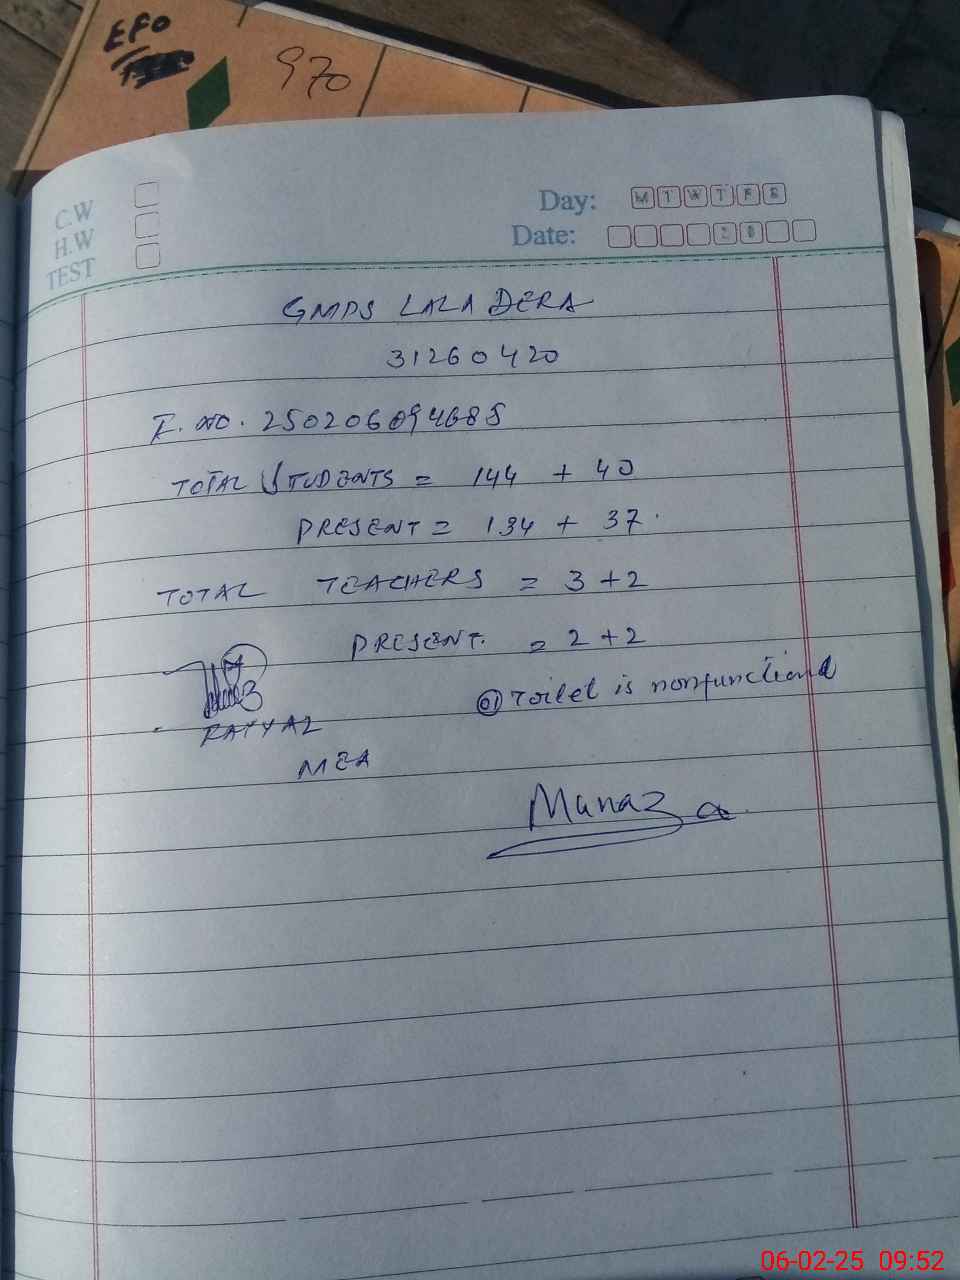 EFO
970
C.W
H.W
TEST
Day: M T W T F S
Date: 2 0
GMPS LALA DERA
31260420
F. NO. 250206094685
TOTAL STUDENTS = 144 + 40
PRESENT = 134 + 37.
TOTAL TEACHERS = 3 + 2
PRESENT. = 2 + 2
01 Toilet is nonfunctional
MEA
Munaza
06-02-25 09:52